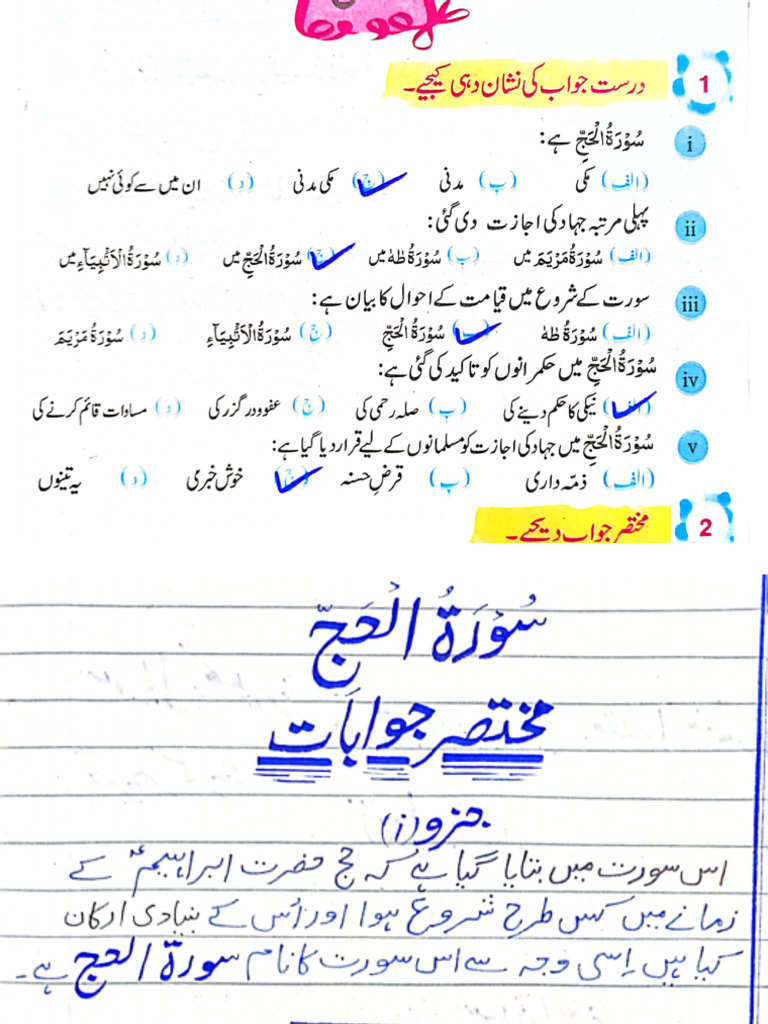 1 درست جواب کی نشان دہی کیجیے۔
i سُوْرَةُ الْحَجِّ ہے:
(الف) مکی (ب) مدنی (ج) مکی مدنی (د) ان میں سے کوئی نہیں
ii پہلی مرتبہ جہاد کی اجازت دی گئی:
(الف) سُوْرَةُ مَرْيَمَ میں (ب) سُوْرَةُ طٰهٰ میں (ج) سُوْرَةُ الْحَجِّ میں (د) سُوْرَةُ الْاَنْۢبِيَآءِ میں
iii سورت کے شروع میں قیامت کے احوال کا بیان ہے:
(الف) سُوْرَةُ طٰهٰ (ب) سُوْرَةُ الْحَجِّ (ج) سُوْرَةُ الْاَنْۢبِيَآءِ (د) سُوْرَةُ مَرْيَمَ
iv سُوْرَةُ الْحَجِّ میں حکمرانوں کو تاکید کی گئی ہے:
(الف) نیکی کا حکم دینے کی (ب) صلہ رحمی کی (ج) عفو و درگزر کی (د) مساوات قائم کرنے کی
v سُوْرَةُ الْحَجِّ میں جہاد کی اجازت کو مسلمانوں کے لیے قرار دیا گیا ہے:
(الف) ذمّہ داری (ب) قرضِ حسنہ (ج) خوش خبری (د) یہ تینوں
2 مختصر جواب دیجیے۔
سُوْرَةُ الْحَجّ
مختصر جوابات
جزو (i)
اس سورت میں بتایا گیا ہے کہ حج حضرت ابراہیمؑ کے
زمانے میں کس طرح شروع ہوا اور اُس کے بنیادی ارکان
کیا ہیں اِسی وجہ سے اس سورت کا نام سورۃ الحج ہے۔